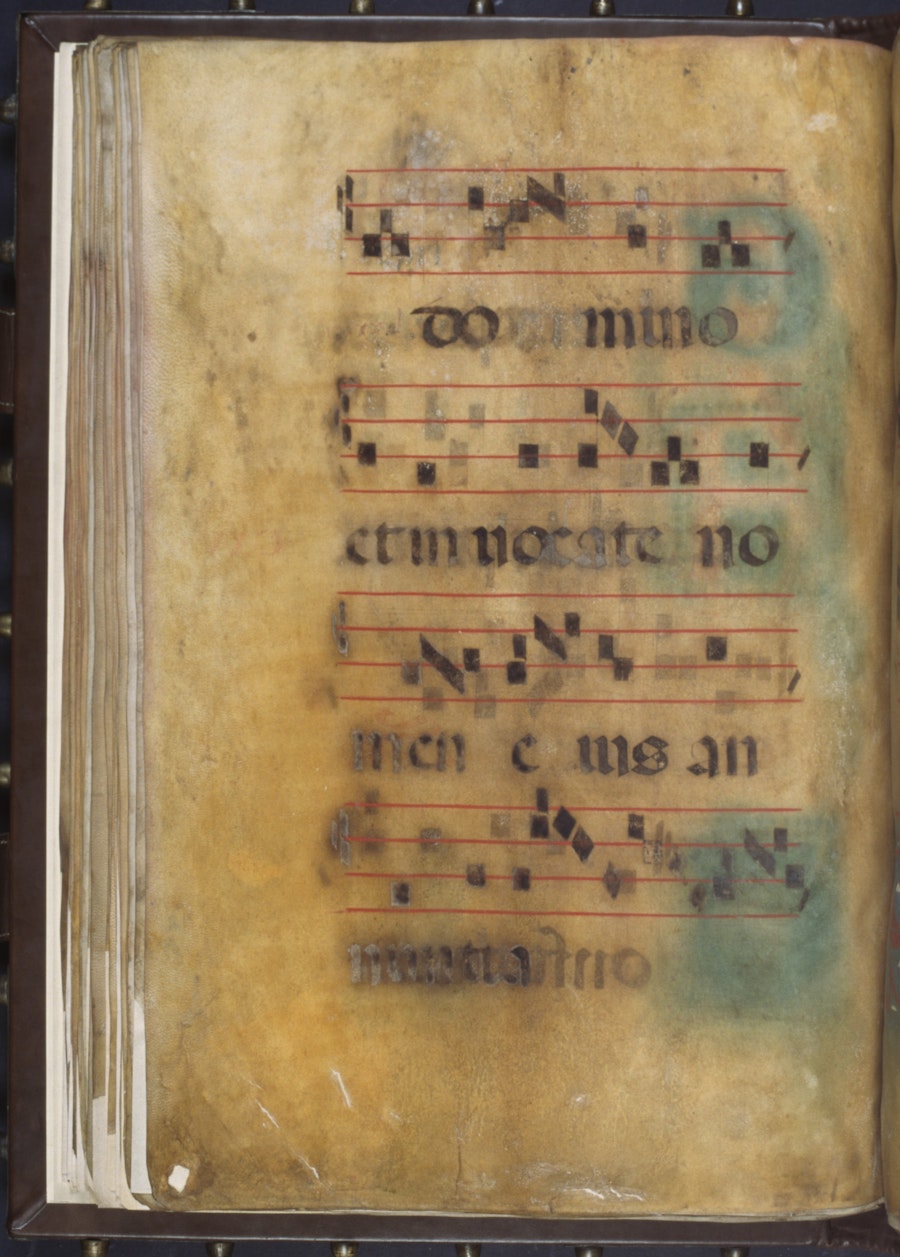 do mino
et in uocate no
men e ius an
nuntia